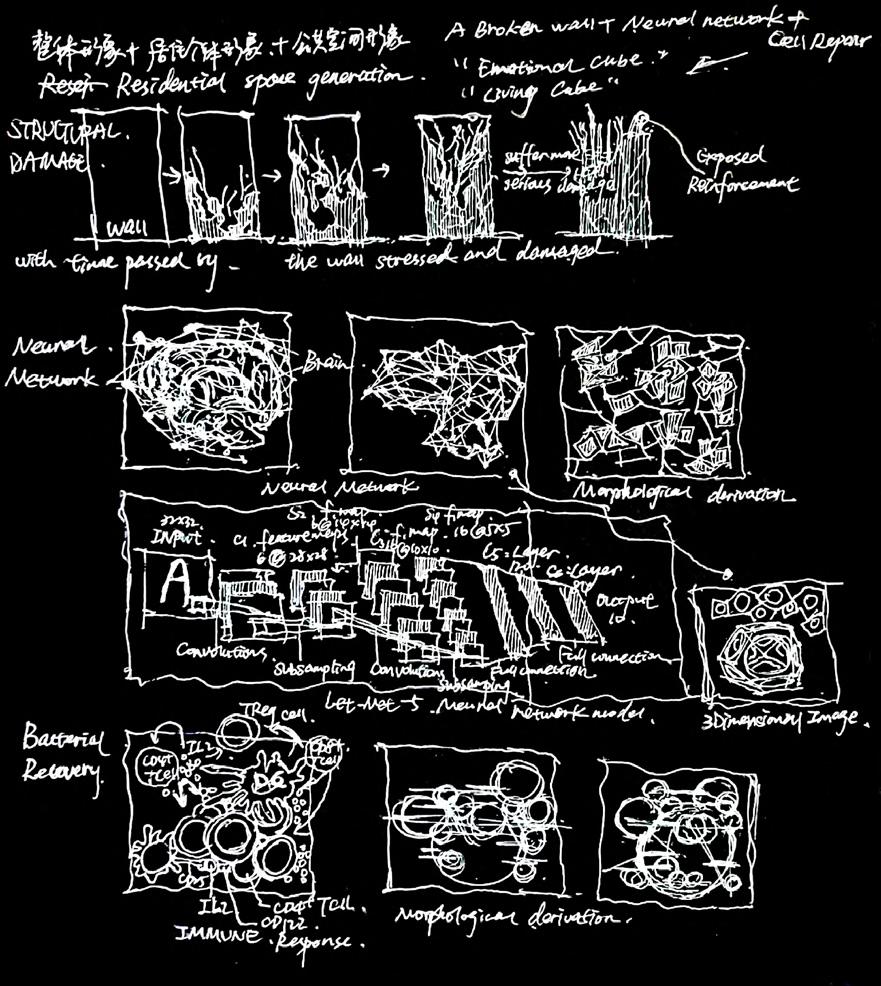 整体形象+居住个体形象+公共空间形象
Residential space generation.
A Broken wall + Neural network +
Cell Repair
"Emotional Cube."
"Living Cube"
STRUCTURAL.
DAMAGE.
wall
suffer more
serious damaged
Exposed
Reinforcement
with time passed by.
the wall stressed and damaged.
Neural
Network
Brain
Neural Network
Morphological derivation
32x32
INPUT.
C1. feature maps
6@28x28
S2 f.map
6@14x14
C3 f.map
16@10x10
S4 f.map
16@5x5
C5=Layer.
120
C6=Layer.
OUTPUT
10.
A
Convolutions.
Subsampling
Convolutions
Subsampling
Full connection
Full connection
Let-Net-5 Neural network model.
3Dimensionary Image.
Bacterial
Recovery.
TReg cell.
IL2
CD4+
TCell
CD8+
TCell
DC
CD25
IL2
CD4+ TCell.
CD122
IMMUNE Response.
Morphological derivation.